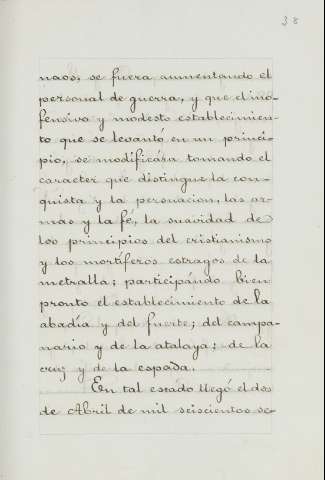 38
naos, se fuera aumentando el
personal de guerra, y que el ino-
fensivo y modesto establecimien-
to que se levantó en un princi-
pio, se modificára tomando el
caracter que distingue la con-
quista y la persuacion, las ar-
mas y la fé, la suavidad de
los principios del cristianismo
y los mortíferos estragos de la
metralla; participándo bien
pronto el establecimiento de la
abadía y del fuerte; del campa-
nario y de la atalaya; de la
cruz y de la espada.
En tal estado llegó el dos
de Abril de mil seiscientos se-